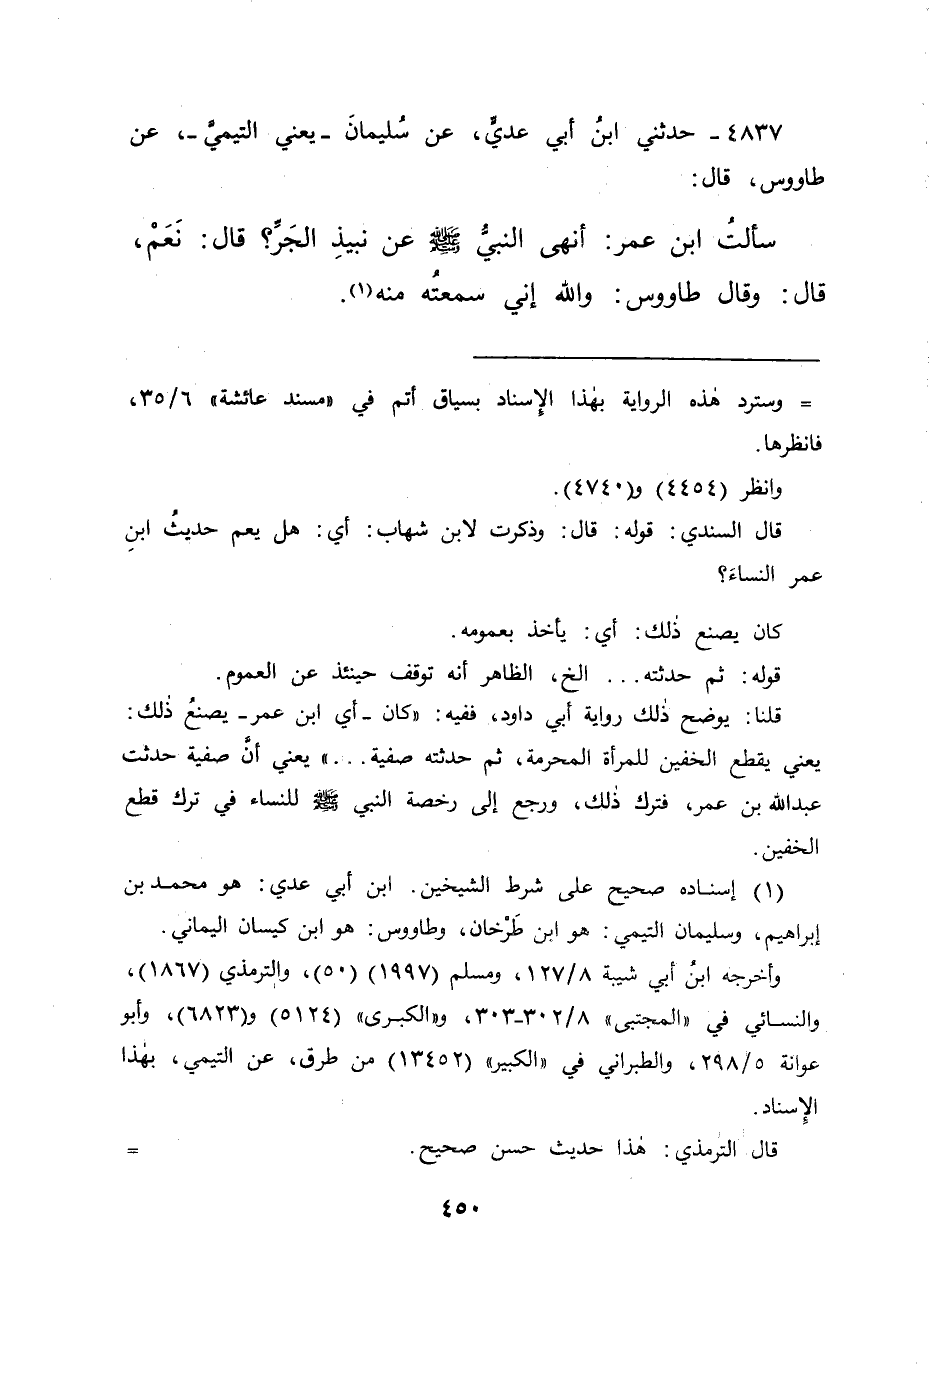 ٤٨٣٧ـ حدثني ابنُ أبي عديٍّ، عن سُليمانَ ـيعني التيميَّ ـ، عن
طاووس، قال:
سألتُ ابن عمر: أنهى النبيُّ ﷺ عن نبيذِ الجَرِّ؟ قال: نَعَمْ،
قال: وقال طاووس: والله إني سمعتُه منه(١).
= وسترد هٰذه الرواية بهٰذا الإسناد بسياق أتم في «مسند عائشة» ٣٥/٦،
فانظرها.
وانظر (٤٤٥٤) و(٤٧٤٠).
قال السندي: قوله: قال: وذكرت لابن شهاب: أي: هل يعم حديثُ ابنِ
عمر النساءَ؟
كان يصنع ذٰلك: أي: يأخذ بعمومه.
قوله: ثم حدثته... الخ، الظاهر أنه توقف حينئذ عن العموم.
قلنا: يوضح ذٰلك رواية أبي داود، ففيه: «كان ـأي ابن عمرـ يصنعُ ذٰلك:
يعني يقطع الخفين للمرأة المحرمة، ثم حدثته صفية...» يعني أنَّ صفية حدثت
عبدالله بن عمر، فترك ذٰلك، ورجع إلى رخصة النبي ﷺ للنساء في ترك قطع
الخفين.
(١) إسناده صحيح على شرط الشيخين. ابن أبي عدي: هو محمد بن
إبراهيم، وسليمان التيمي: هو ابن طَرْخان، وطاووس: هو ابن كيسان اليماني.
وأخرجه ابنُ أبي شيبة ١٢٧/٨، ومسلم (١٩٩٧) (٥٠)، والترمذي (١٨٦٧)،
والنسائي في «المجتبى» ٣٠٢/٨ـ٣٠٣، و«الكبرى» (٥١٢٤) و(٦٨٢٣)، وأبو
عوانة ٢٩٨/٥، والطبراني في «الكبير» (١٣٤٥٢) من طرق، عن التيمي، بهٰذا
الإسناد.
قال الترمذي: هٰذا حديث حسن صحيح. =
٤٥٠